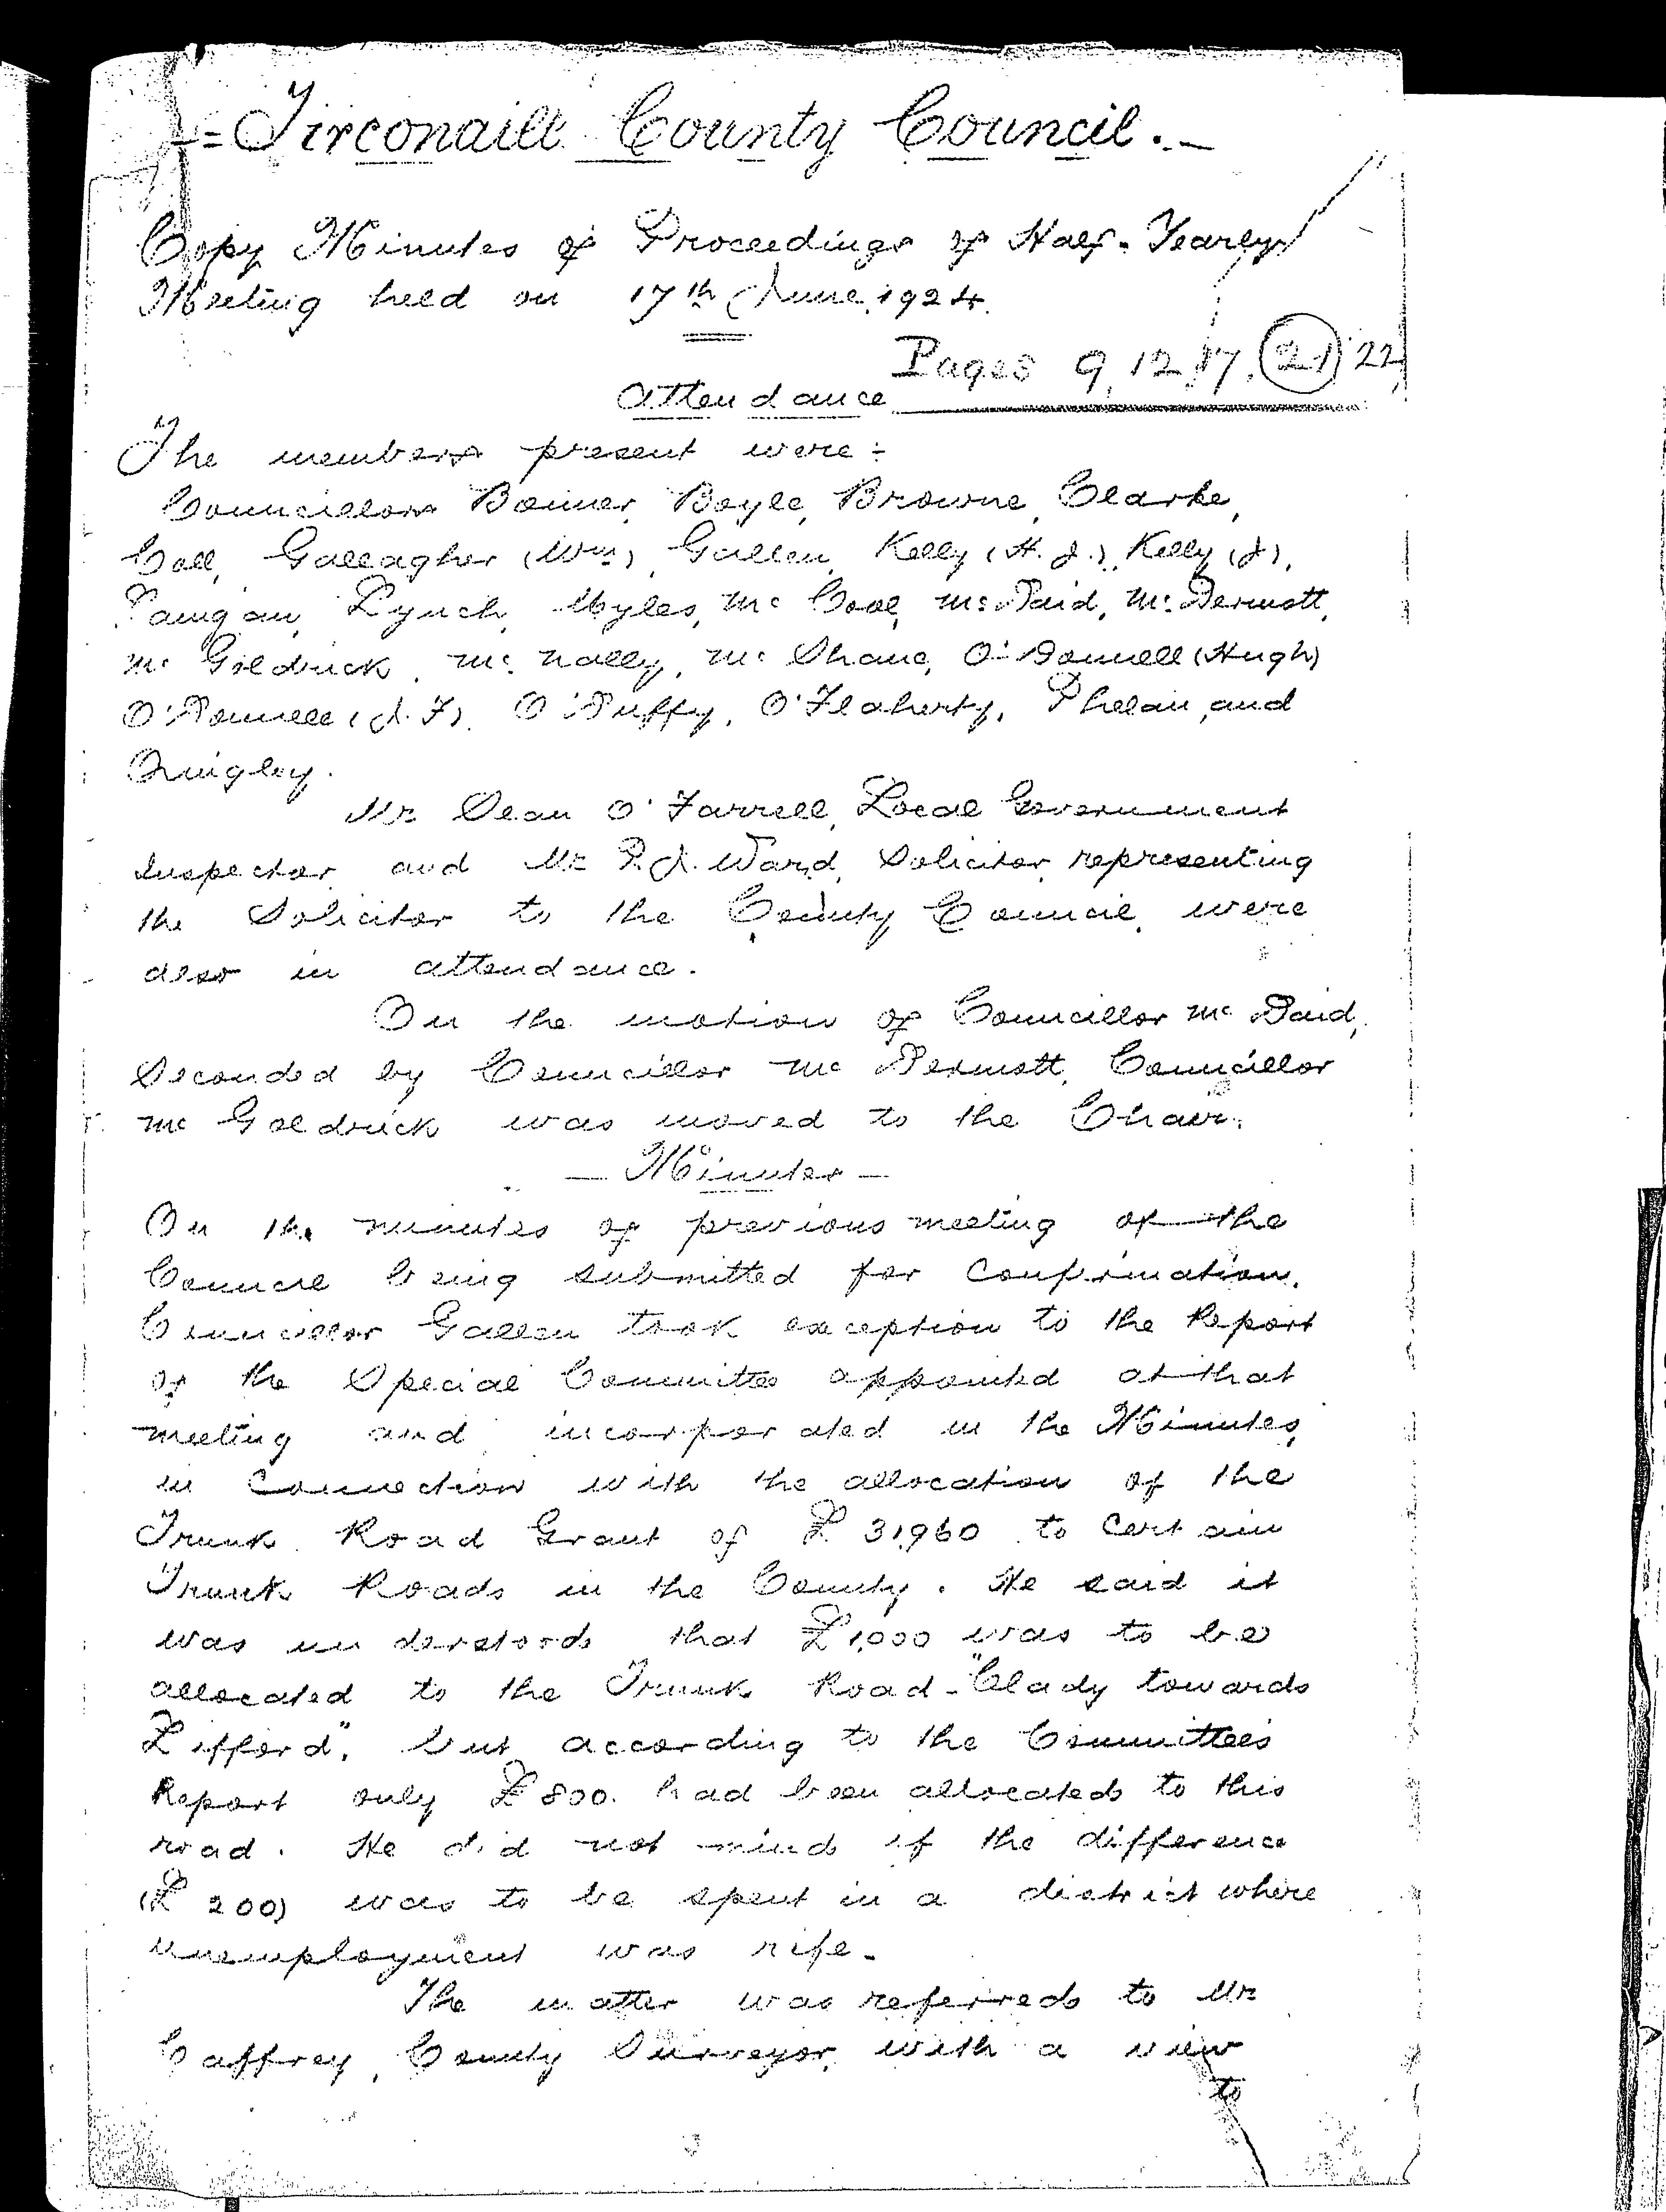 = Tirconaill County Council. -
Copy Minutes of Proceedings of Half-Yearly
Meeting held on 17th June, 1924.
Pages 9, 12, 17, 21, 22
Attendance
The members present were:-
Councillors Bonner, Boyle, Browne, Clarke,
Coll, Gallagher (Wm), Gallen, Kelly (H. J.), Kelly (J),
Langan, Lynch, Myles, Mc Cool, McDaid, McDermott,
Mc Goldrick, Mc Nally, Mc Shane, O'Donnell (Hugh)
O'Donnell (J. F), O'Duffy, O'Flaherty, Phelan, and
Quigley.
Mr Sean O'Farrell, Local Government
Inspector, and Mr P. J. Ward, Solicitor, representing
the Solicitor to the County Council, were
also in attendance.
On the motion of Councillor Mc Daid,
Seconded by Councillor Mc Dermott, Councillor
Mc Goldrick was moved to the Chair.
- Minutes -
On the minutes of previous meeting of the
Council being submitted for Confirmation,
Councillor Gallen took exception to the Report
of the Special Committee appointed at that
meeting and incorporated in the Minutes,
in Connection with the allocation of the
Trunk Road Grant of £31,960 to Certain
Trunk Roads in the County. He said it
was understood that £1,000 was to be
allocated to the Trunk Road - "Clady towards
Lifford", but according to the Committee's
Report only £800. had been allocated to this
road. He did not mind if the difference
(£200) was to be spent in a district where
unemployment was rife.
The matter was referred to Mr
Caffrey, County Surveyor, with a view
to